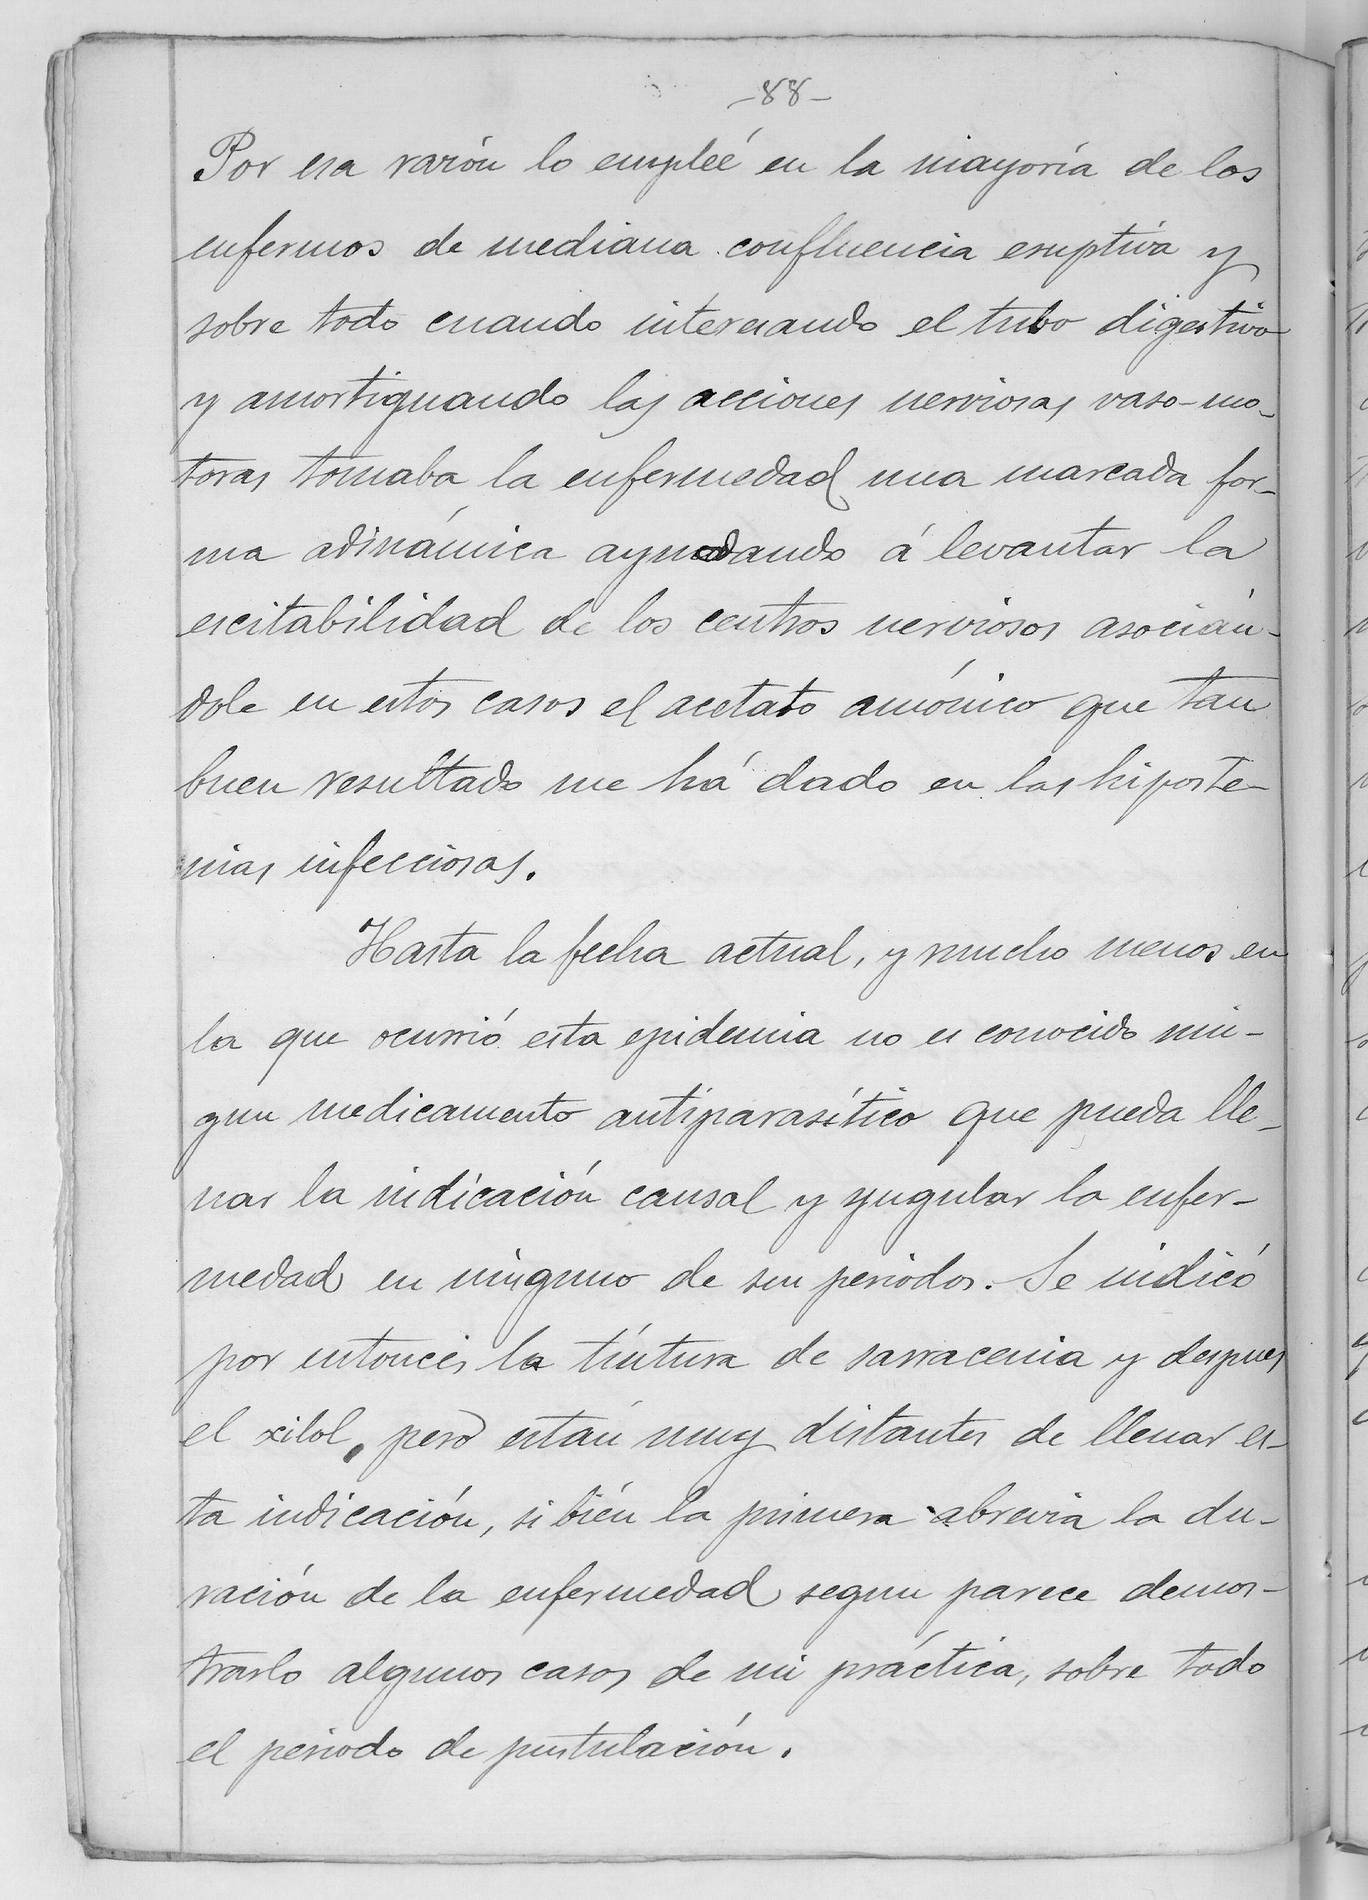 -88-
Por esa razón lo empleé en la mayoría de los
enfermos de mediana confluencia eruptiva y
sobre todo cuando interesando el tubo digestivo
y amortiguando las acciones nerviosas vaso-mo-
toras tomaba la enfermedad una marcada for-
ma adinámica ayudando á levantar la
escitabilidad de los centros nerviosos asocián-
dole en estos casos el acetato amónico que tan
buen resultado me há dado en las hiposte-
nias infecciosas.
Hasta la fecha actual, y mucho menos en
la que ocurrió esta epidemia no es conocido nin-
gun medicamento antiparasítico que pueda lle-
nar la indicación causal y yugular la enfer-
medad en ninguno de sus periodos. Se indicó
por entonces la tintura de sarracenia y despues
el xilol, pero están muy distantes de llenar es-
ta indicación, si bién la primera abrevia la du-
ración de la enfermedad segun parece demos-
trarlo algunos casos de mi práctica, sobre todo
el periodo de pustulación.